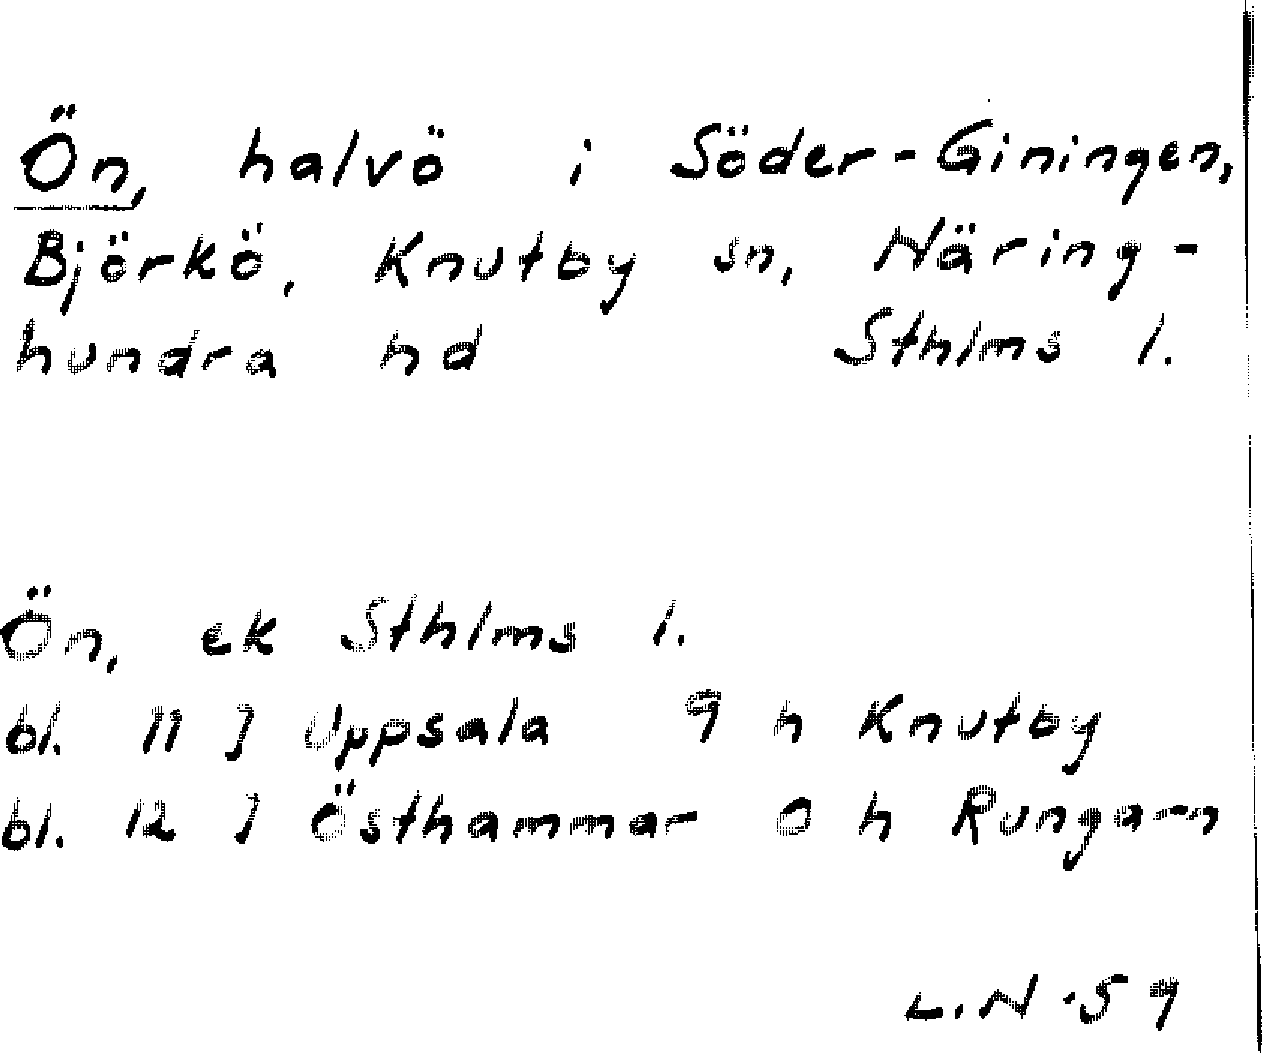 Ön, halvö i Söder-Giningen,
Björkö, Knutby sn, Näring-
hundra hd Sthlms l.
Ön, ek Sthlms l.
bl. 11 J Uppsala 9 h Knutby
bl. 12 J Östhammar 0 h Rungarn
L.N -59